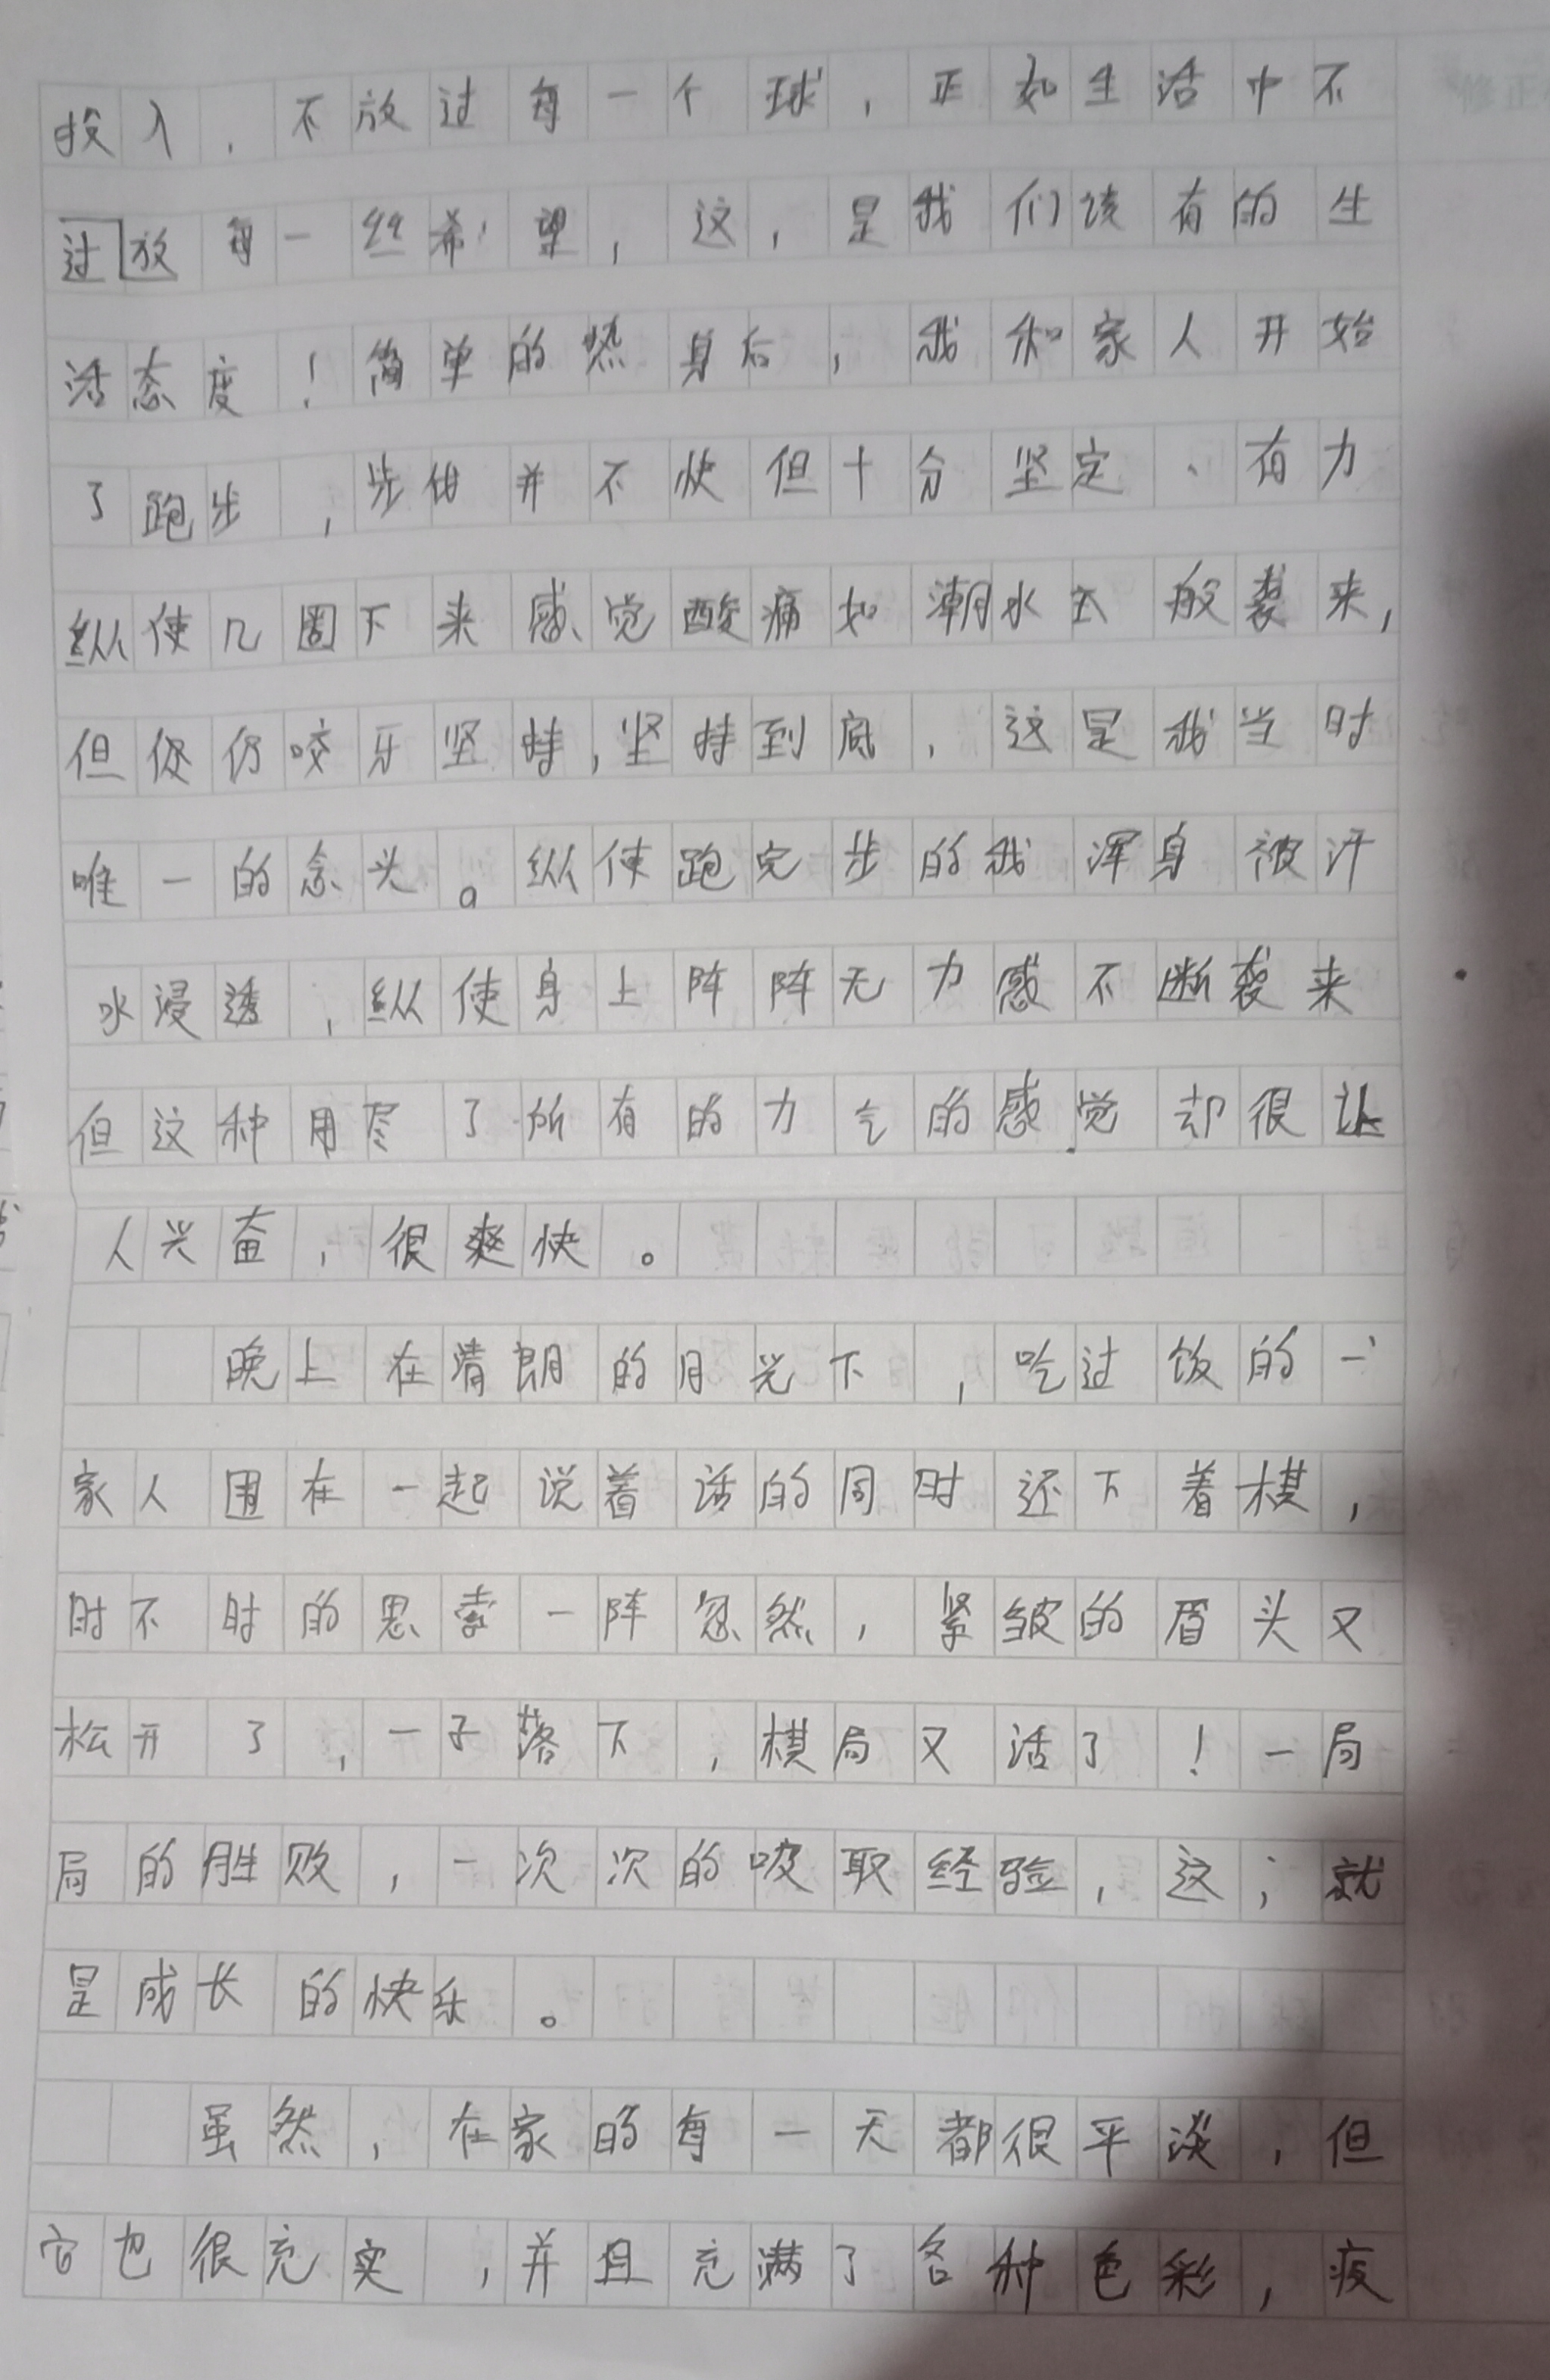 投入，不放过每一个球，正如生活中不
过放每一丝希望，这，是我们该有的生
活态度！简单的热身后，我和家人开始
了跑步，步伐并不快但十分坚定、有力
纵使几圈下来感觉酸痛如潮水般袭来，
但仍咬牙坚持，坚持到底，这是我当时
唯一的念头。纵使跑完步的我浑身被汗
水浸透，纵使身上阵阵无力感不断袭来
但这种用尽了所有的力气的感觉却很让
人兴奋，很爽快。
晚上在清朗的月光下，吃过饭的一
家人围在一起说着话的同时还下着棋，
时不时的思索一阵忽然，紧皱的眉头又
松开了，一子落下，棋局又活了！一局
局的胜败，一次次的吸取经验，这；就
是成长的快乐。
虽然，在家的每一天都很平淡，但
它也很充实，并且充满了各种色彩，疫